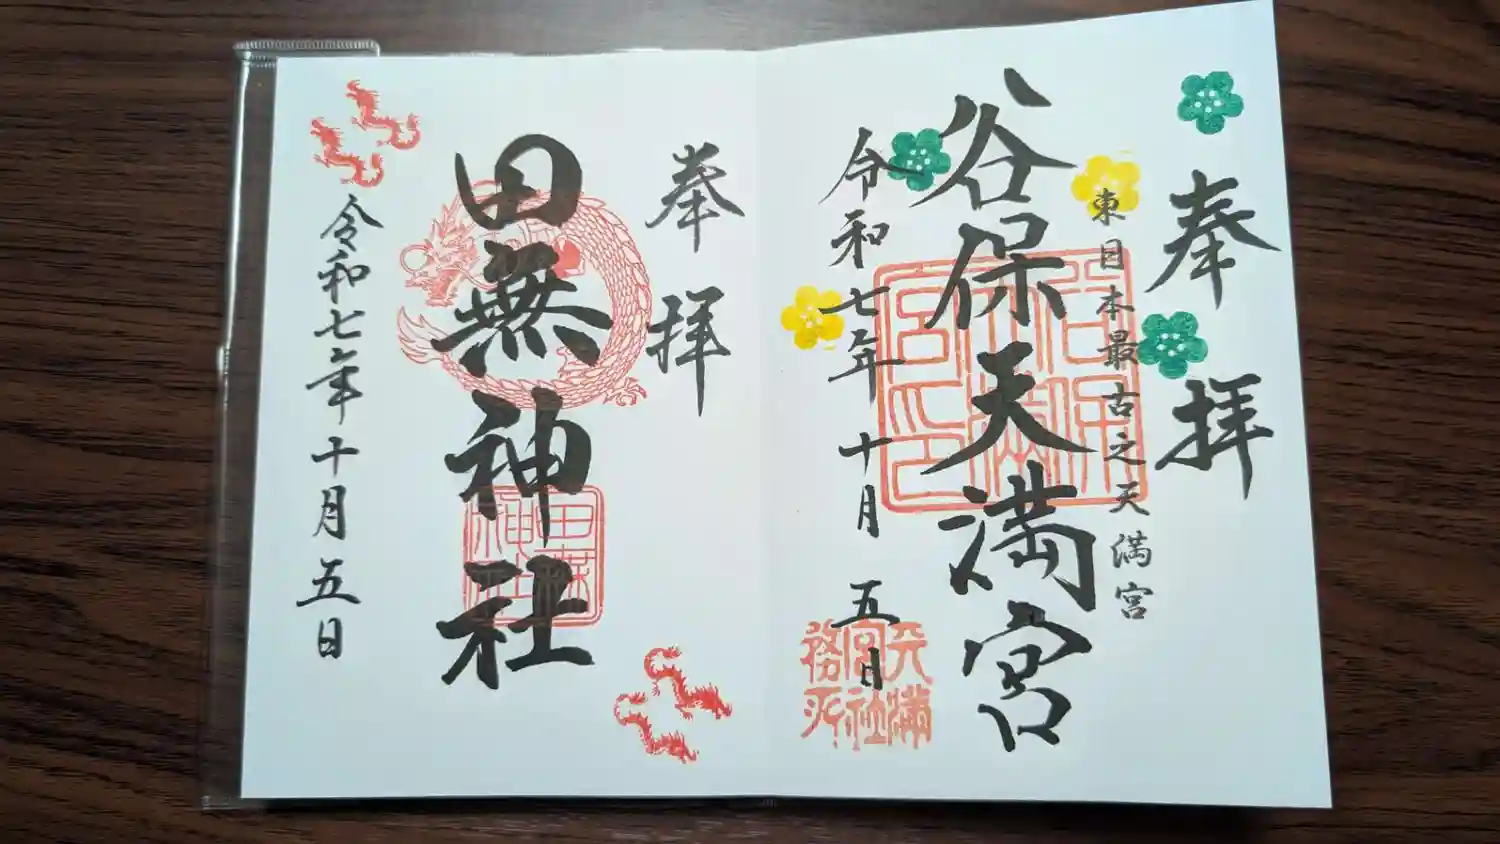 奉拝
東日本最古之天満宮
谷保天満宮
谷保天満宮印
令和七年十月五日
天満宮社務所
奉拝
田無神社
田無神社
令和七年十月五日